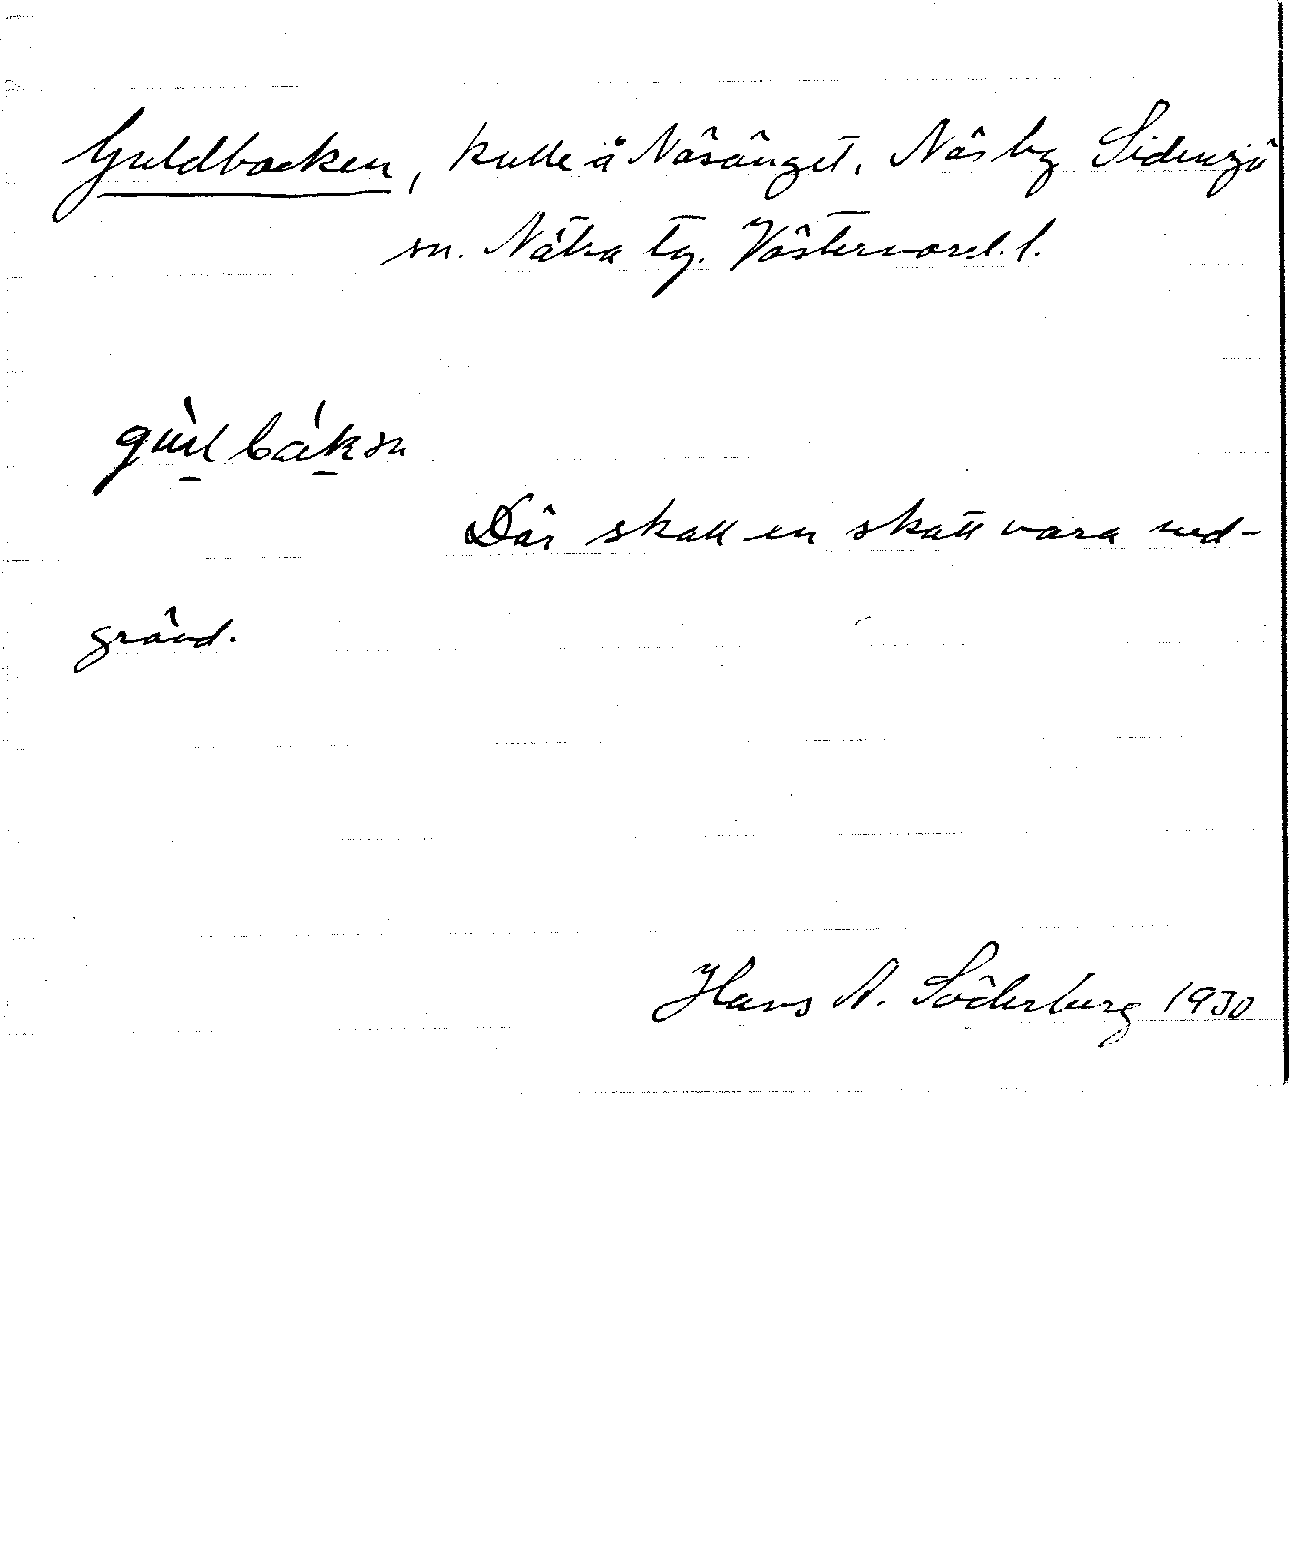 Guldbacken, kulle å Näsänget, Näs by Sidensjö
sn. Nätra tg. Västernorrl. l.
gùl bákən
Där skall en skatt vara ned-
grävd.
Hans A. Söderberg 1930